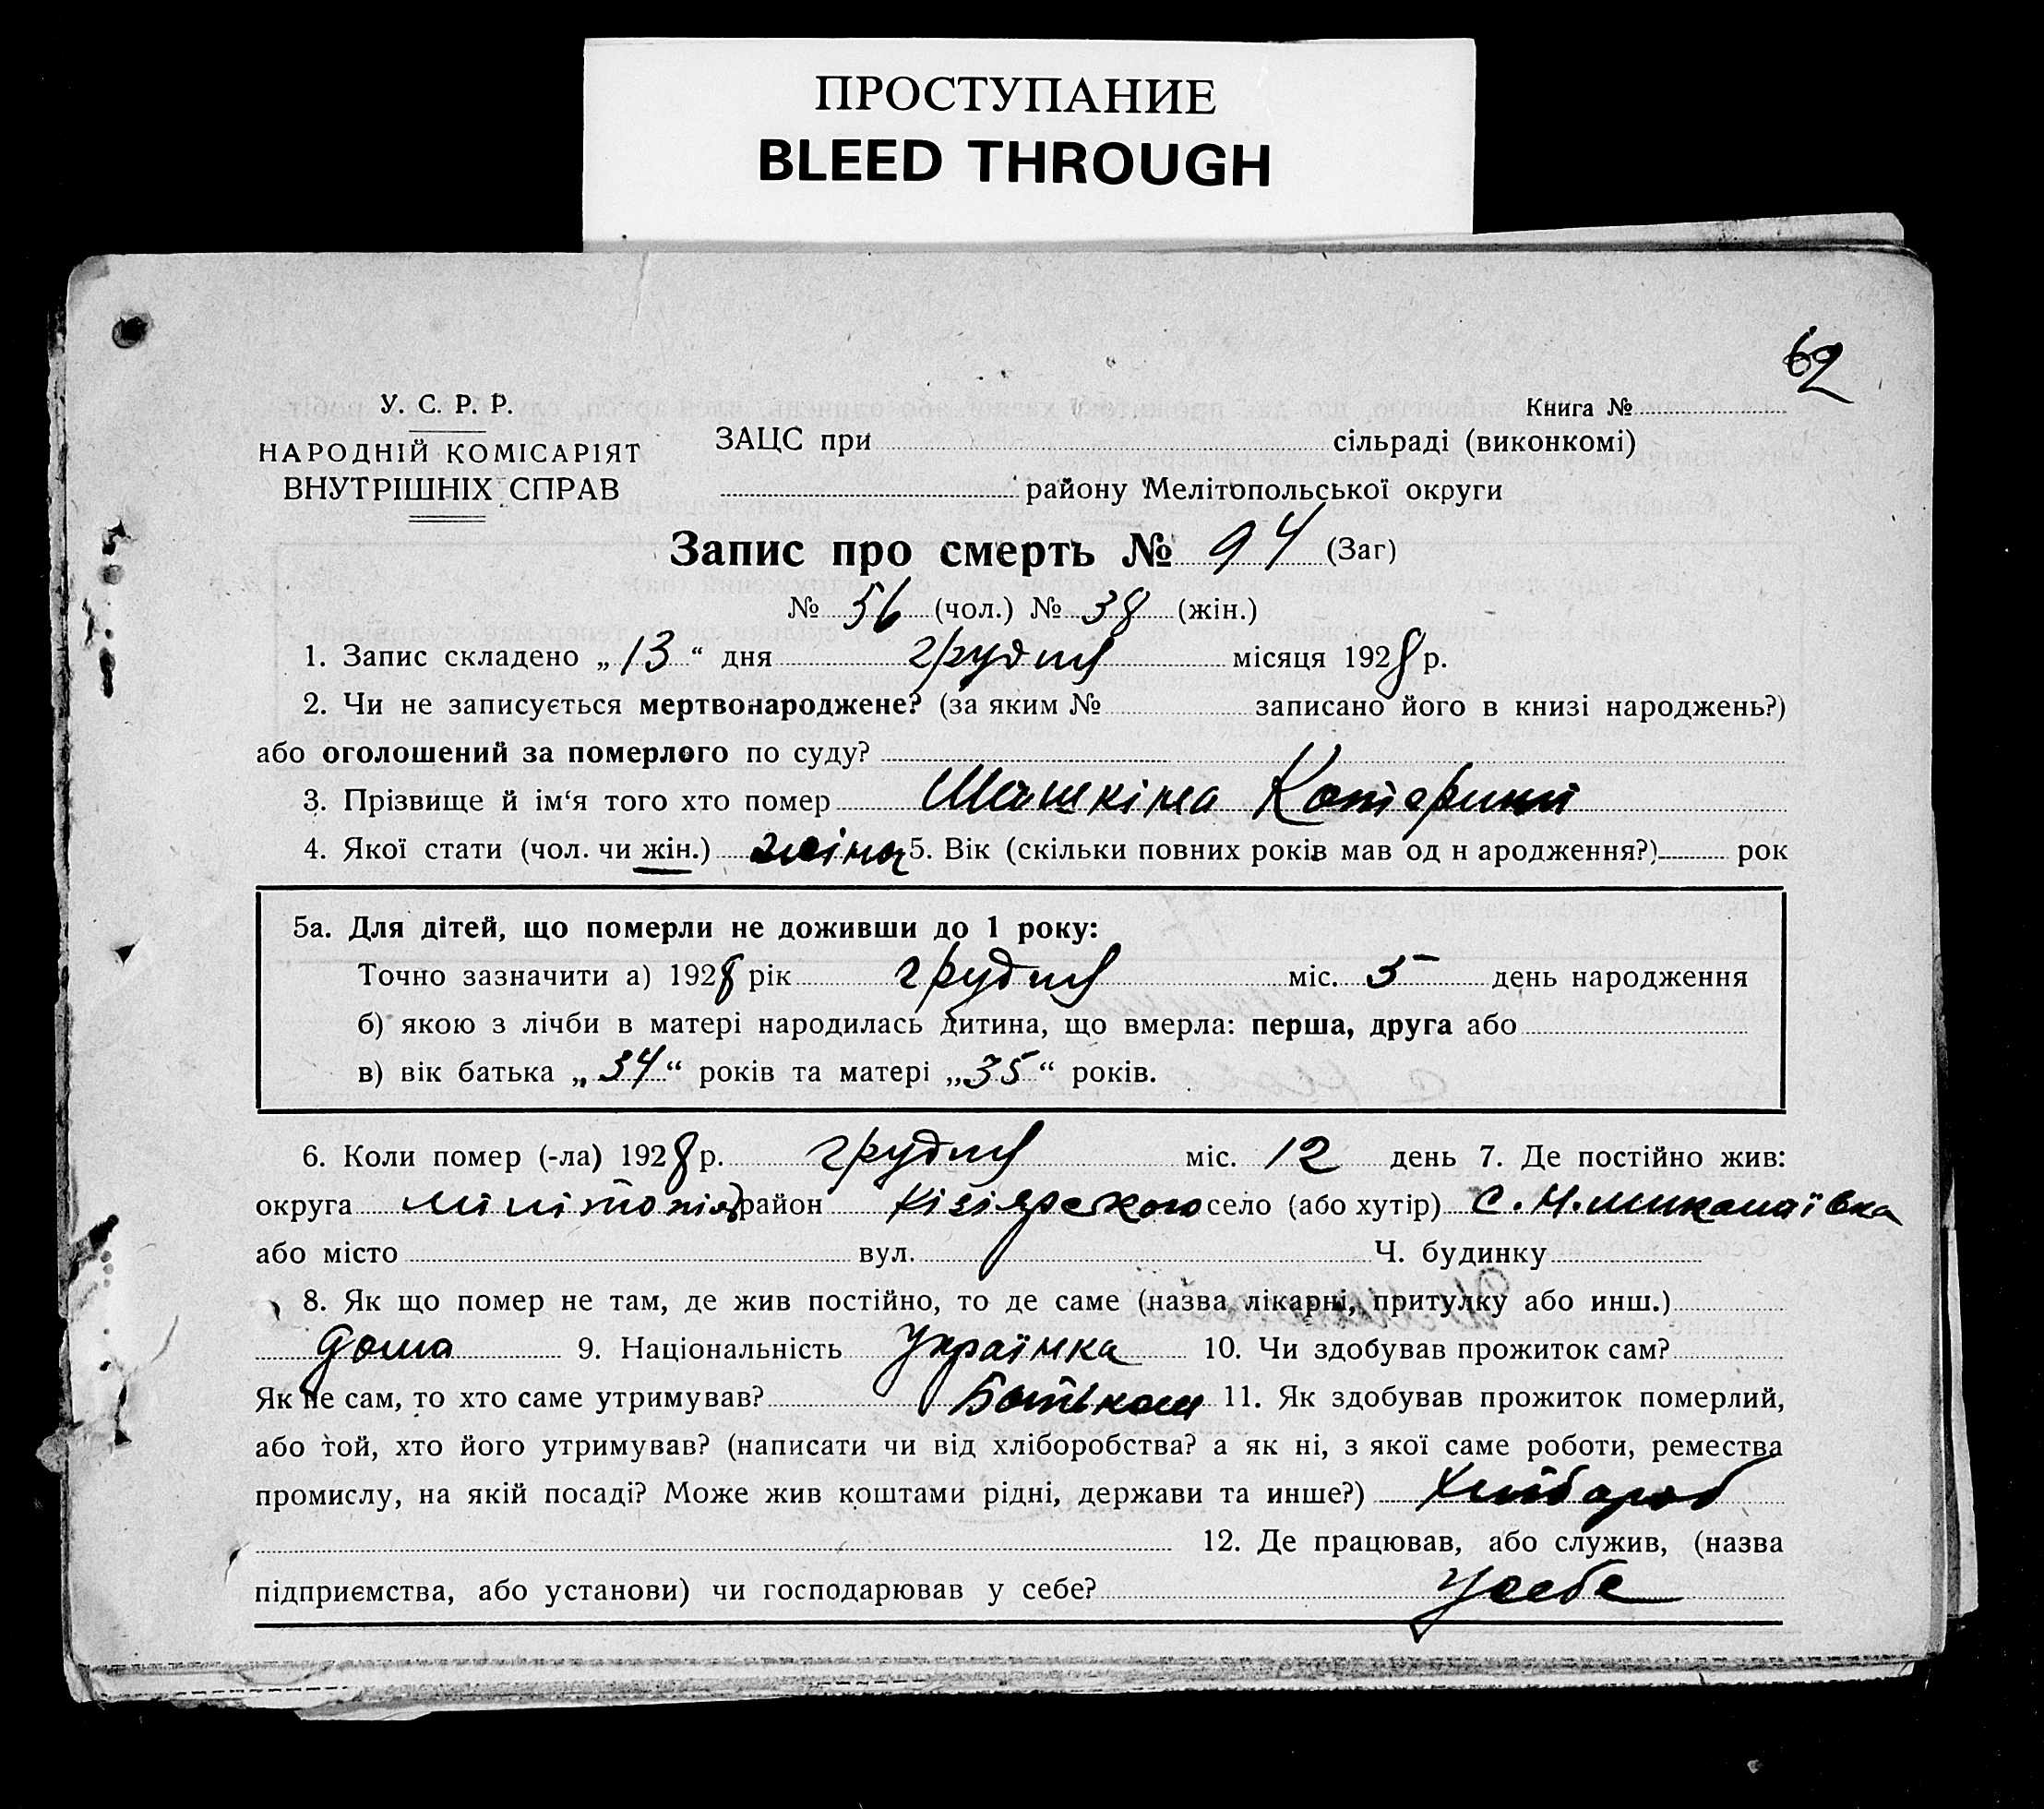 ПРОСТУПАНИЕ
BLEED THROUGH
62
У. С. Р. Р.
НАРОДНІЙ КОМІСАРІЯТ
ВНУТРІШНІХ СПРАВ
Книга №
ЗАЦС при сільраді (виконкомі)
району Мелітопольської округи
Запис про смерть № 94 (Заг)
№ 56 (чол.) № 38 (жін.)
1. Запис складено „13“ дня грудня місяця 1928 р.
2. Чи не записується мертвонароджене? (за яким № записано його в книзі народжень?)
або оголошений за померлого по суду?
3. Прізвище й ім‘я того хто помер Шашкіна Катерина
4. Якої стати (чол. чи жін.) жіноч 5. Вік (скільки повних років мав од н ародження?) рок
5а. Для дітей, що померли не доживши до 1 року:
Точно зазначити а) 1928 рік грудня міс. 5 день народження
б) якою з лічби в матері народилась дитина, що вмерла: перша, друга або
в) вік батька „34“ років та матері „35“ років.
6. Коли помер (-ла) 1928 р. грудня міс. 12 день 7. Де постійно жив:
округа район Кізіярського село (або хутір) с. Н. миколаївка
або місто вул. Ч. будинку
8. Як що помер не там, де жив постійно, то де саме (назва лікарні, притулку або инш.)
дома 9. Національність Українка 10. Чи здобував прожиток сам?
Як не сам, то хто саме утримував? Батьком 11. Як здобував прожиток померлий,
або той, хто його утримував? (написати чи від хліборобства? а як ні, з якої саме роботи, ремества
промислу, на якій посаді? Може жив коштами рідні, держави та инше?) Хлібароб
12. Де працював, або служив, (назва
підприємства, або установи) чи господарював у себе? у себе